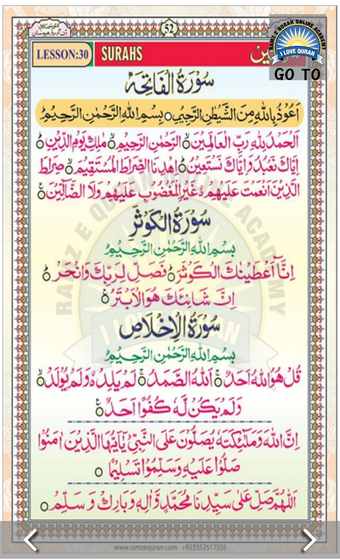 52
LESSON:30 SURAHS
RAMZ E QURAN ONLINE ACADEMY
I LOVE QURAN
GO TO
سُوْرَةُ الْفَاتِحَة
اَعُوْذُ بِاللّٰهِ مِنَ الشَّيْطٰنِ الرَّجِيْمِ بِسْمِ اللّٰهِ الرَّحْمٰنِ الرَّحِيْمِ
اَلْحَمْدُ لِلّٰهِ رَبِّ الْعَالَمِيْنَ الرَّحْمٰنِ الرَّحِيْمِ مٰلِكِ يَوْمِ الدِّيْنِ
اِيَّاكَ نَعْبُدُ وَاِيَّاكَ نَسْتَعِيْنُ اِهْدِنَا الصِّرَاطَ الْمُسْتَقِيْمَ صِرَاطَ
الَّذِيْنَ اَنْعَمْتَ عَلَيْهِمْ غَيْرِ الْمَغْضُوْبِ عَلَيْهِمْ وَلَا الضَّآلِّيْنَ
سُوْرَةُ الْكَوْثَرِ
بِسْمِ اللّٰهِ الرَّحْمٰنِ الرَّحِيْمِ
اِنَّا اَعْطَيْنٰكَ الْكَوْثَرَ فَصَلِّ لِرَبِّكَ وَانْحَرْ
اِنَّ شَانِئَكَ هُوَ الْاَبْتَرُ
سُوْرَةُ الْاِخْلَاصِ
بِسْمِ اللّٰهِ الرَّحْمٰنِ الرَّحِيْمِ
قُلْ هُوَ اللّٰهُ اَحَدٌ اَللّٰهُ الصَّمَدُ لَمْ يَلِدْ وَلَمْ يُوْلَدْ
وَلَمْ يَكُنْ لَّهٗ كُفُوًا اَحَدٌ
اِنَّ اللّٰهَ وَمَلٰٓئِكَتَهٗ يُصَلُّوْنَ عَلَى النَّبِيِّ يٰاَيُّهَا الَّذِيْنَ اٰمَنُوْا
صَلُّوْا عَلَيْهِ وَسَلِّمُوْا تَسْلِيْمًا
اَللّٰهُمَّ صَلِّ عَلٰى سَيِّدِنَا مُحَمَّدٍ وَّاٰلِهٖ وَبَارِكْ وَسَلِّمْ
www.ramzequran.com +923352517555